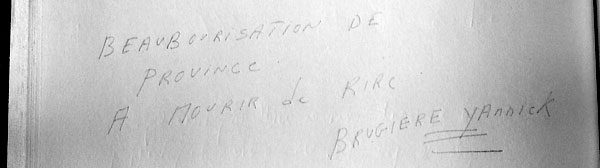 BEAUBOURISATION DE
PROVINCE.
A MOURIR de RIRE.
BRUGIERE YAnnicK